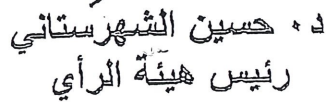 د. حسين الشهرستاني
رئيس هيئة الرأي